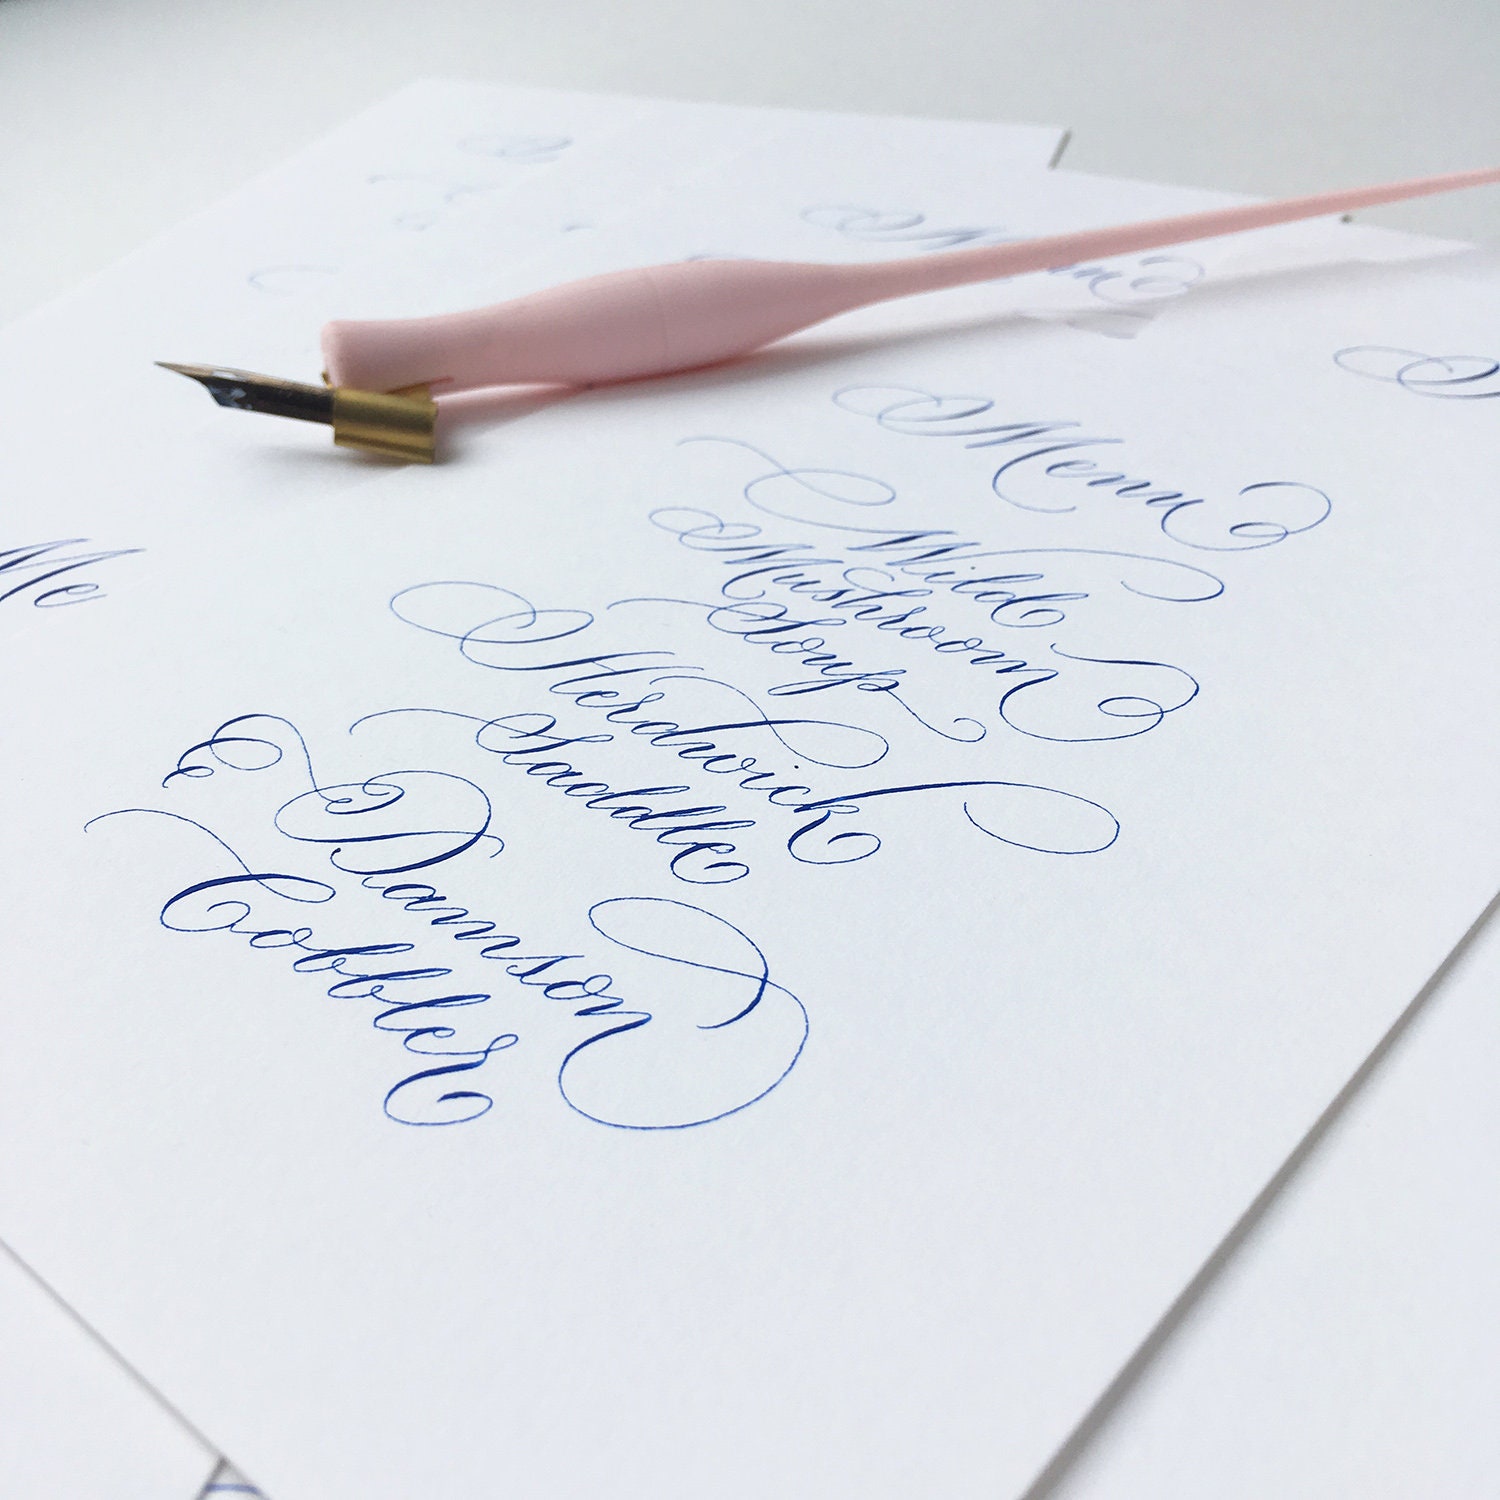 Menu
Wild
Mushroom
Soup
Herdwick
Saddle
& Damson
Cobbler
Me